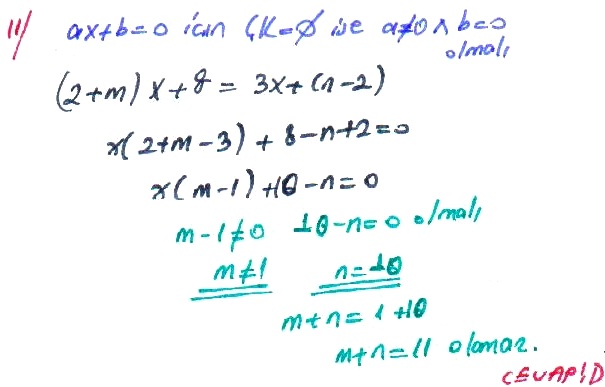 11/ ax+b=0 için ÇK=∅ ise a≠0 ∧ b=0 olmalı
(2+m) x + 8 = 3x + (n-2)
x(2+m-3) + 8-n+2=0
x(m-1)+10-n=0
m-1≠0 10-n=0 olmalı
m≠1 n=10
m+n= 1+10
m+n=11 olamaz.
CEVAP:D